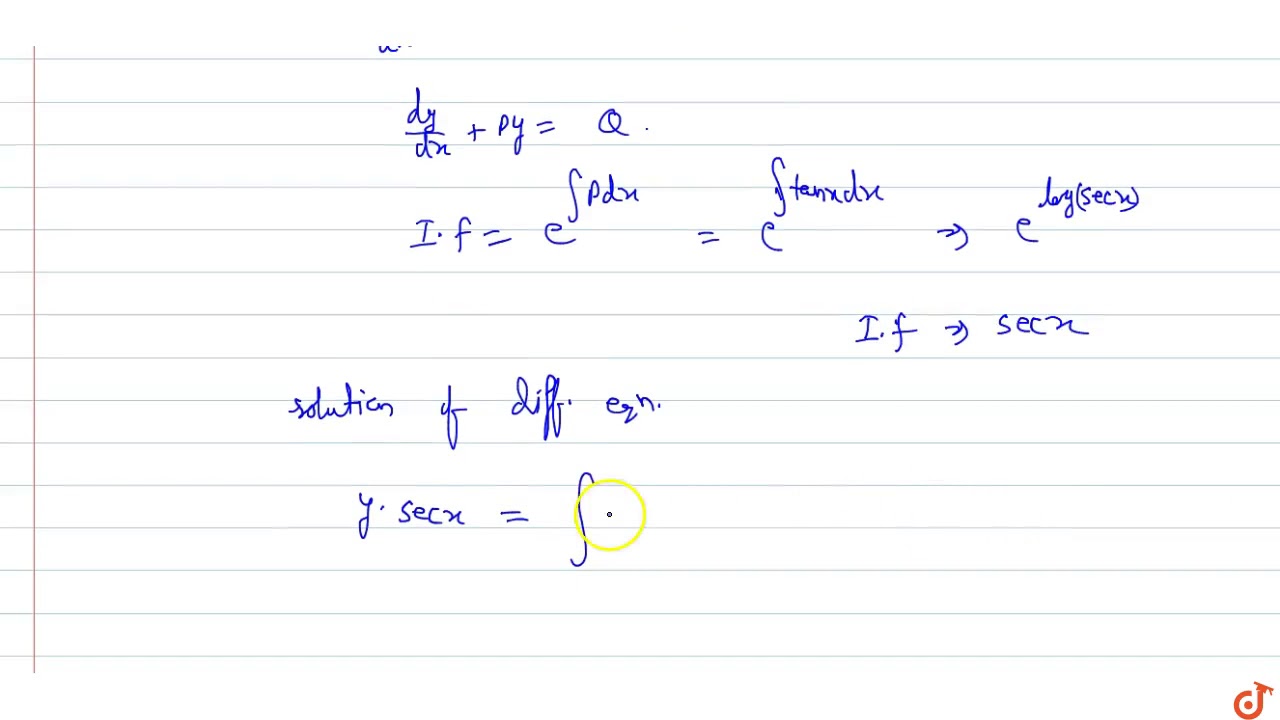 dy/dx + Py = Q.
I.f = e^∫Pdx = e^∫tanxdx ⇒ e^log(secx)
I.f ⇒ secx
solution of diff. eqn.
y. secx = ∫